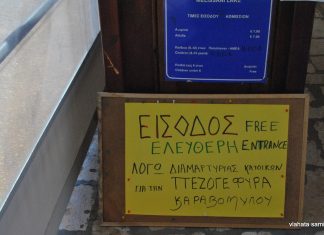 MELISSANI LAKE
ΤΙΜΕΣ ΕΙΣΟΔΟΥ ADMISSION
€ 7.00
Free
ΕΙΣΟΔΟΣ FREE
ΕΛΕΥΘΕΡΗ ENTRANCE
ΛΟΓΩ ΔΙΑΜΑΡΤΥΡΙΑΣ ΚΑΤΟΙΚΩΝ
ΓΙΑ ΤΗΝ ΠΕΖΟΓΕΦΥΡΑ
ΚΑΡΑΒΟΜΥΛΟΥ
vlahata sam